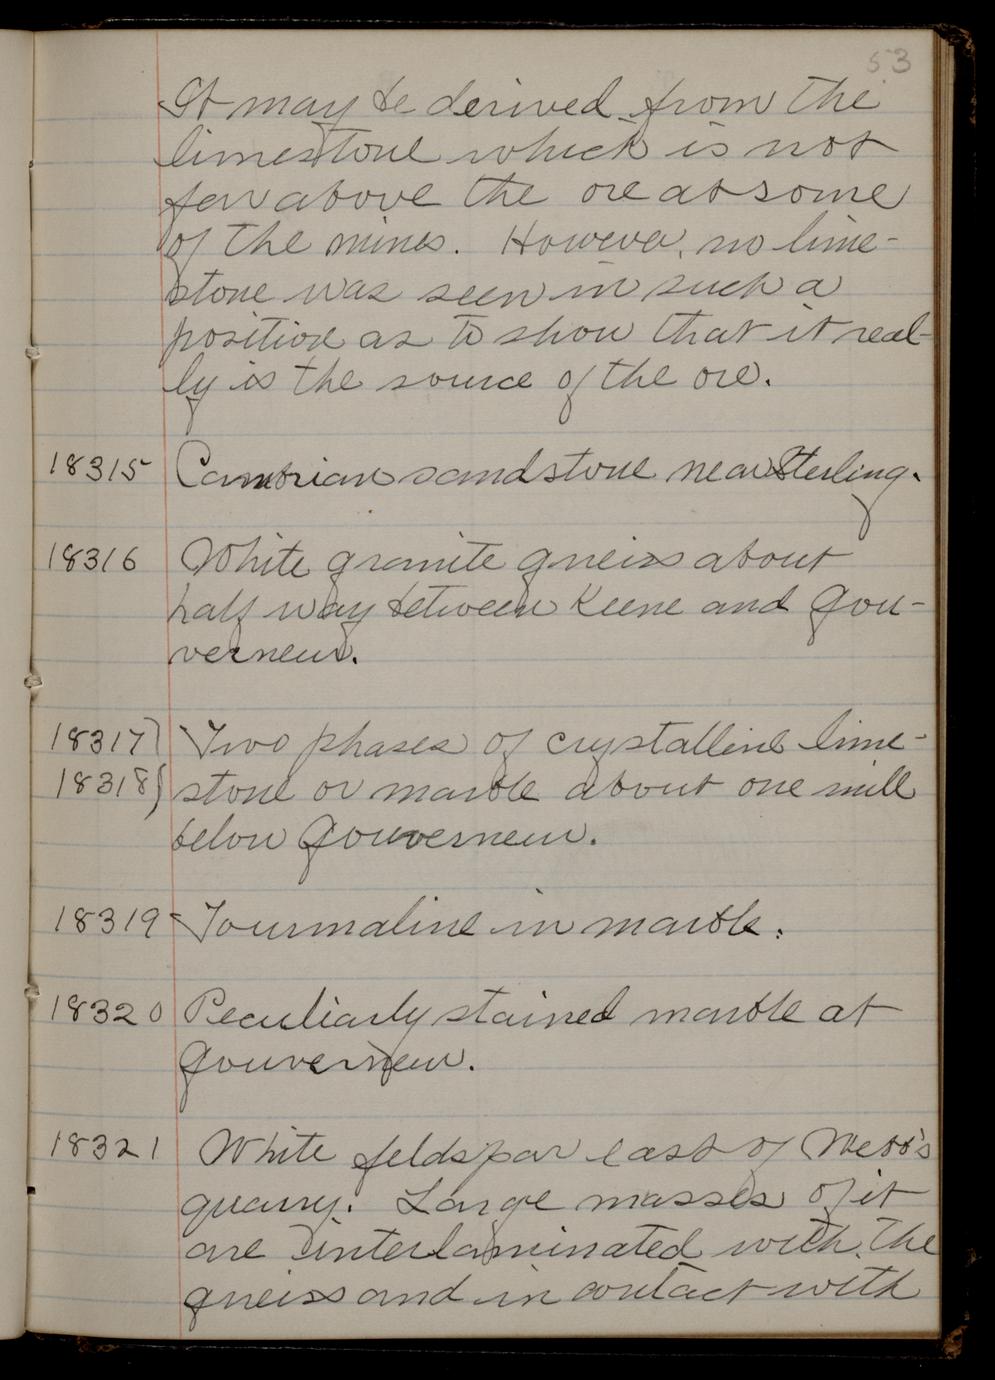 53
It may be derived from the
limestone which is not
far above the ore at some
of the mines. However, no lime-
stone was seen in such a
position as to show that it real-
ly is the source of the ore.
18315 Cambrian sandstone near Sterling.
18316 White granite gneiss about
half way between Keene and Gou-
verneur.
18317} Two phases of crystalline lime-
18318} stone or marble about one mile
below Gouverneur.
18319 Tourmaline in marble.
18320 Peculiarly stained marble at
Gouverneur.
18321 White feldspar east of Webb's
quarry. Large masses of it
are interlaminated with the
gneiss and in contact with